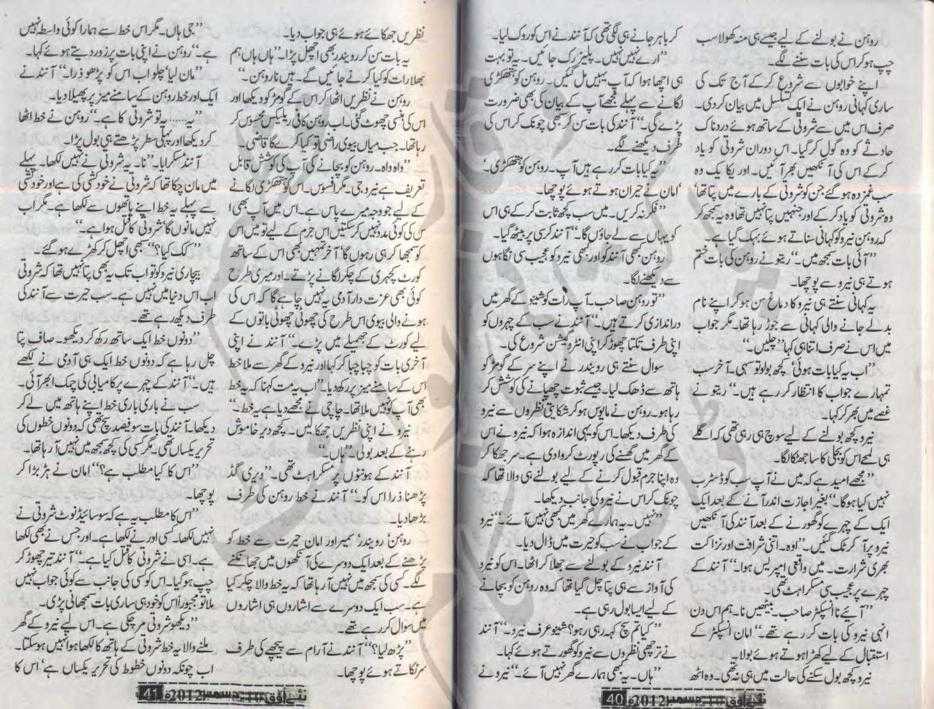 روہن نے بولنے کے لیے جیسے ہی منہ کھولا سب
چپ ہو کر اس کی بات سننے لگے۔
اپنے خوابوں سے شروع کر کے آج تک کی
ساری کہانی روہن نے ایک تسلسل میں بیان کر دی۔
صرف اس میں سے شروتی کے ساتھ ہوئے دردناک
حادثے کو وہ گول کر گیا۔ اس دوران شروتی کو یاد
کر کے اس کی آنکھیں بھر آئیں۔ اور یکایک وہ
سب غمزدہ ہو گئے جن کو شروتی کے بارے میں پتا تھا
وہ شروتی کو یاد کر کے اور جنہیں پتا نہیں تھا وہ یہ سمجھ کر
کہ روہن نیرو کو کہانی سناتے ہوئے بہک گیا ہے۔
"آئی بات سمجھ میں۔" ریتو نے روہن کی بات ختم
ہوتے ہی نیرو سے پوچھا۔
یہ کہانی سنتے ہی نیرو کا دماغ سن ہو کر اپنے نام
بدلے جانے والی کہانی سے جوڑ رہا تھا۔ مگر جواب
میں اس نے صرف اتنا ہی کہا "چلیں۔"
"اب یہ کیا بات ہوئی؟ کچھ بولو تو سہی۔ آخر سب
تمہارے جواب کا انتظار کر رہے ہیں۔" ریتو نے
غصے میں بھر کر کہا۔
نیرو کچھ بولنے کے لیے سوچ ہی رہی تھی کہ اگلے
ہی لمحے اس کو بجلی کا سا جھٹکا لگا۔
"مجھے امید ہے کہ میں نے آپ سب کو ڈسٹرب
نہیں کیا ہو گا۔" بغیر اجازت اندر آنے کے بعد ایک
ایک کے چہرے کو گھورنے کے بعد آنند کی آنکھیں
نیرو پر آ کر ٹک گئیں۔ "اوہ۔ اتنی شرافت اور نزاکت
بھری شرارت۔ میں واقعی امپریس ہوا۔" آنند کے
چہرے پر عجیب سی مسکراہٹ تھی۔
"آئیے نا انسپکٹر صاحب۔ بیٹھیں نا۔ ہم اس دن
انہی نیرو کی بات کر رہے تھے۔" امان انسپکٹر کے
استقبال کے لیے کھڑا ہوتے ہوئے بولا۔
نیرو کچھ بول سکنے کی حالت میں ہی نہ تھی۔ وہ اٹھ
کر باہر جانے ہی لگی تھی کہ آنند نے اس کو روک لیا۔
"ارے نہیں نہیں۔ پلیز رک جائیں۔ یہ تو بہت
ہی اچھا ہوا کہ آپ یہیں مل گئیں۔ روہن کو ہتھکڑی
لگانے سے پہلے مجھے آپ کے بیان کی بھی ضرورت
پڑے گی۔" آنند کی بات سن کر بھی چونک کر اس کی
طرف دیکھنے لگے۔
"یہ کیا بات کر رہے ہیں آپ۔ روہن کو ہتھکڑی۔"
امان نے حیران ہوتے ہوئے پوچھا۔
"فکر نہ کریں۔ میں سب کچھ ثابت کر کے ہی اس
کو یہاں سے لے جاؤں گا۔" آنند کرسی پر بیٹھ گیا۔
روہن بھی آنند کو اور بھی نیرو کو عجیب سی نگاہوں
سے دیکھنے لگا۔
"تو روہن صاحب۔ آپ رات کو شینو کے گھر میں
در اندازی کرتے ہیں۔" آنند نے سب کے چہروں کو
اپنی طرف تکتا چھوڑ کر اپنی انٹروگیشن شروع کی۔
سوال سنتے ہی رویندر نے اپنے سر کے گومڑ کو
ہاتھ سے ڈھک لیا۔ جیسے ثبوت چھپانے کی کوشش کر
رہا ہو۔ روہن نے مایوس ہو کر شکایتی نظروں سے نیرو
کی طرف دیکھا۔ اس کو یہی اندازہ ہوا کہ نیرو نے اس
کے گھر میں گھسنے کی رپورٹ کروا دی ہے۔ سر جھکا کر
وہ اپنا جرم قبول کرنے کے لیے بولنے ہی والا تھا کہ
چونک کر اس نے نیرو کی جانب دیکھا۔
"نہیں۔ یہ ہمارے گھر میں بھی نہیں آئے۔" نیرو
کے جواب نے سب کو حیرت میں ڈال دیا۔
آنند نیرو کے بولنے سے جھلا کر اٹھا۔ اس کو نیرو
کی آواز سے ہی پتا چل گیا تھا کہ وہ روہن کو بچانے
کے لیے ایسا بول رہی ہے۔
"کیا تم سچ کہہ رہی رہو؟ شینو عرف نیرو۔" آنند
نے ترچھی نظروں سے نیرو کو گھورتے ہوئے کہا۔
"ہاں۔ یہ کبھی ہمارے گھر نہیں آئے۔" نیرو نے
نئے افق 40 دسمبر 2012ء
نظریں جھکائے ہوئے ہی جواب دیا۔
یہ بات سن کر رویندر بھی اچھل پڑا۔ "ہاں ہاں ہم
بھلا رات کو کیا کرنے جائیں گے۔ ہیں نا روہن۔"
روہن نے نظریں اٹھا کر اس کے گومڑ کو دیکھا اور
اس کی ہنسی چھوٹ گئی۔ اب روہن کافی ریلیکس محسوس کر
رہا تھا۔ جب میاں بیوی راضی تو کیا کرے گا قاضی۔
"واہ واہ۔ روہن کو بچانے کی آپ کی کوشش قابل
تعریف ہے نیرو جی۔ مگر افسوس۔ اس کو ہتھکڑی لگانے
کے لیے جو وجہ میرے پاس ہے۔ اس میں آپ بھی ا
س کی کوئی مدد نہیں کر سکتیں اس جرم کے لیے تو میں اس
کو سمجھا کر ہی رہوں گا آخر تمہیں بھی اس کے ساتھ
کورٹ کچہری کے چکر لگانے پڑتے۔ اور میری طرح
کوئی بھی عزت دار آدمی یہ نہیں چاہے گا کہ اس کی
ہونے والی بیوی اس طرح کی چھوٹی چھوٹی باتوں کے
لیے کورٹ کے جھمیلے میں پڑے۔" آنند نے اپنی
آخری بات کو چبا چبا کر کہا اور نیرو کے گھر سے ملا خط
اس کے سامنے میز پر رکھ دیا۔ "اب یہ مت کہنا کہ یہ خط
بھی آپ کو نہیں ملا تھا۔ چاچی نے مجھے دیا ہے یہ خط۔"
نیرو نے اپنی نظریں جھکا لیں۔ کچھ دیر خاموش
رہنے کے بعد بولی "ہاں۔"
آنند کے ہونٹوں پر مسکراہٹ تھی۔ "ویری گڈ
پڑھنا ذرا اس کو۔" آنند نے خط روہن کی طرف
بڑھا دیا۔
روہن رویندر سمیر اور امان حیرت سے خط کو
پڑھنے کے بعد ایک دوسرے کی آنکھوں میں جھانکنے
لگے۔ کسی کی سمجھ میں نہیں آ رہا تھا کہ یہ خط والا چکر کیا
ہے۔ سب ایک دوسرے سے اشاروں ہی اشاروں
میں سوال کر رہے تھے۔
"پڑھ لیا؟" آنند نے آرام سے پیچھے کی طرف
سرکاتے ہوئے پوچھا۔
"جی ہاں۔ مگر اس خط سے ہمارا کوئی واسطہ نہیں
ہے۔" روہن نے اپنی بات پر زور دیتے ہوئے کہا۔
"مان لیا چلو اب اس کو پڑھو ذرا۔" آنند نے
ایک اور خط روہن کے سامنے میز پر پھیلا دیا۔
"یہ...... یہ تو شروتی کا ہے۔" روہن نے خط اٹھا
کر دیکھا اور پہلی سطر پڑھتے ہی بول پڑا۔
آنند مسکرایا۔ "نا۔ یہ شروتی نے نہیں لکھا۔ پہلے
میں مان چکا تھا کہ شروتی نے خودکشی کی ہے اور خودکشی
سے پہلے یہ خط اپنے ہاتھوں سے لکھا ہے۔ مگر اب
نہیں مانوں گا شروتی کا قتل ہوا ہے۔"
"کک کیا؟" سبھی اچھل کر کھڑے ہو گئے۔
بیچاری نیرو کو تو اب تک یہ بھی پتا نہیں تھا کہ شروتی
اب اس دنیا میں نہیں ہے۔ سب حیرت سے آنند کی
طرف دیکھ رہے تھے۔
"دونوں خط ایک ساتھ رکھ کر دیکھو۔ صاف پتا
چل رہا ہے کہ دونوں خط ایک ہی آدمی نے لکھے
ہیں۔" آنند کے چہرے پر کامیابی کی چمک ابھر آئی۔
سب نے باری باری خط اپنے ہاتھ میں لے کر
دیکھا۔ آنند کی بات سو فیصد سچ تھی کہ دونوں خطوں کی
تحریر یکساں تھی۔ مگر کسی کی کچھ سمجھ میں نہیں آ رہا تھا۔
"اس کا کیا مطلب ہے؟" امان نے ہڑبڑا کر
پوچھا۔
"اس کا مطلب یہ ہے کہ سوسائیڈ نوٹ شروتی نے
نہیں لکھا۔ کسی اور نے لکھا ہے۔ اور جس نے بھی لکھا
ہے۔ اسی نے شروتی کا قتل کیا ہے۔" آنند تیر چھوڑ کر
چپ ہو گیا۔ اس کو کسی کی جانب سے کوئی جواب نہیں
ملا تو مجبوراً اس کو خود ہی ساری بات سمجھانی پڑی۔
"دیکھو شروتی مر چکی ہے۔ اس لیے نیرو کے گھر
ملنے والا یہ خط شروتی کے ہاتھ کا لکھا ہوا نہیں ہو سکتا۔
اب چونکہ دونوں خطوط کی تحریر یکساں ہے اس کا
نئے افق 41 دسمبر 2012ء